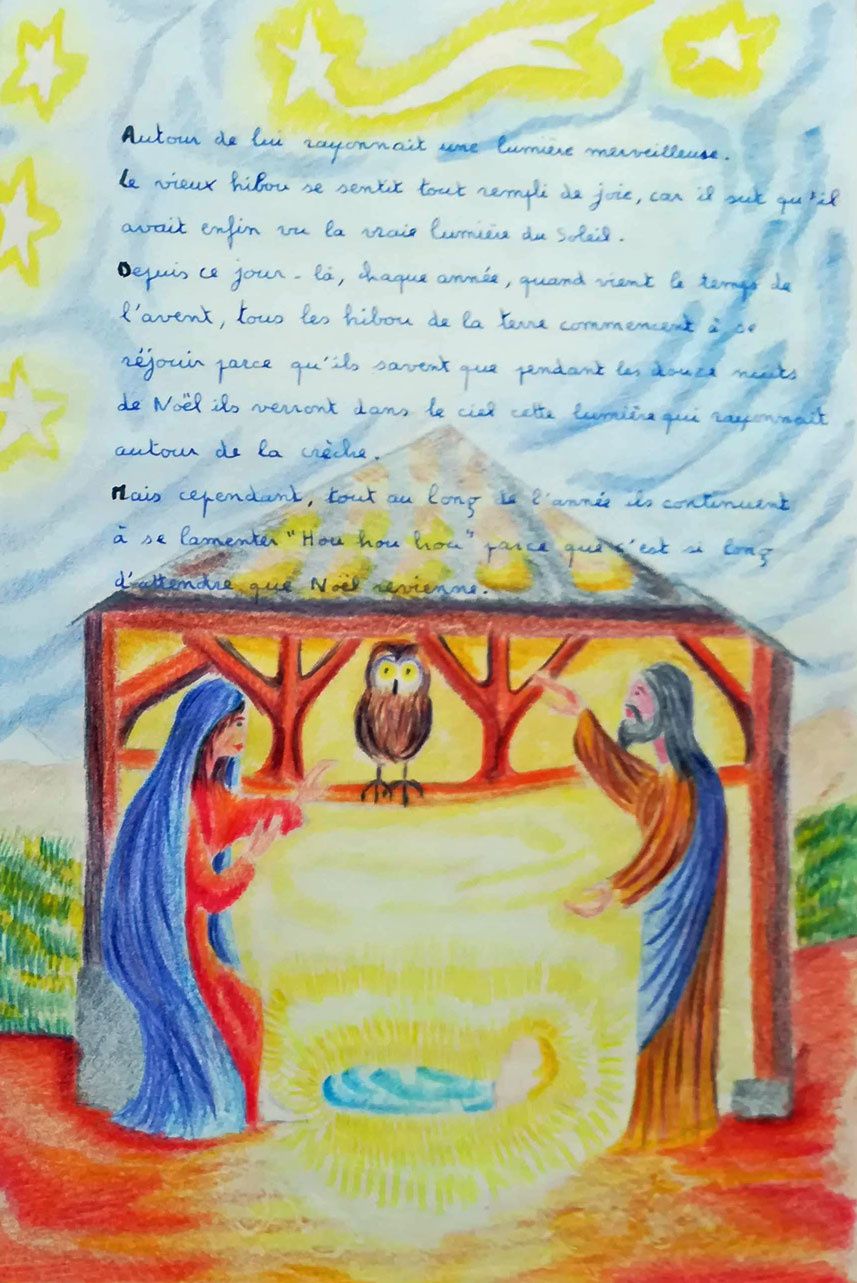 Autour de lui rayonnait une lumière merveilleuse.
Le vieux hibou se sentit tout rempli de joie, car il sut qu'il
avait enfin vu la vraie lumière du Soleil.
Depuis ce jour-là, chaque année, quand vient le temps de
l'avent, tous les hibou de la terre commencent à se
réjouir parce qu'ils savent que pendant les douce nuits
de Noël ils verront dans le ciel cette lumière qui rayonnait
autour de la crèche.
Mais cependant, tout au long de l'année ils continuent
à se lamenter "Hou hou hou" parce que c'est si long
d'attendre que Noël revienne.